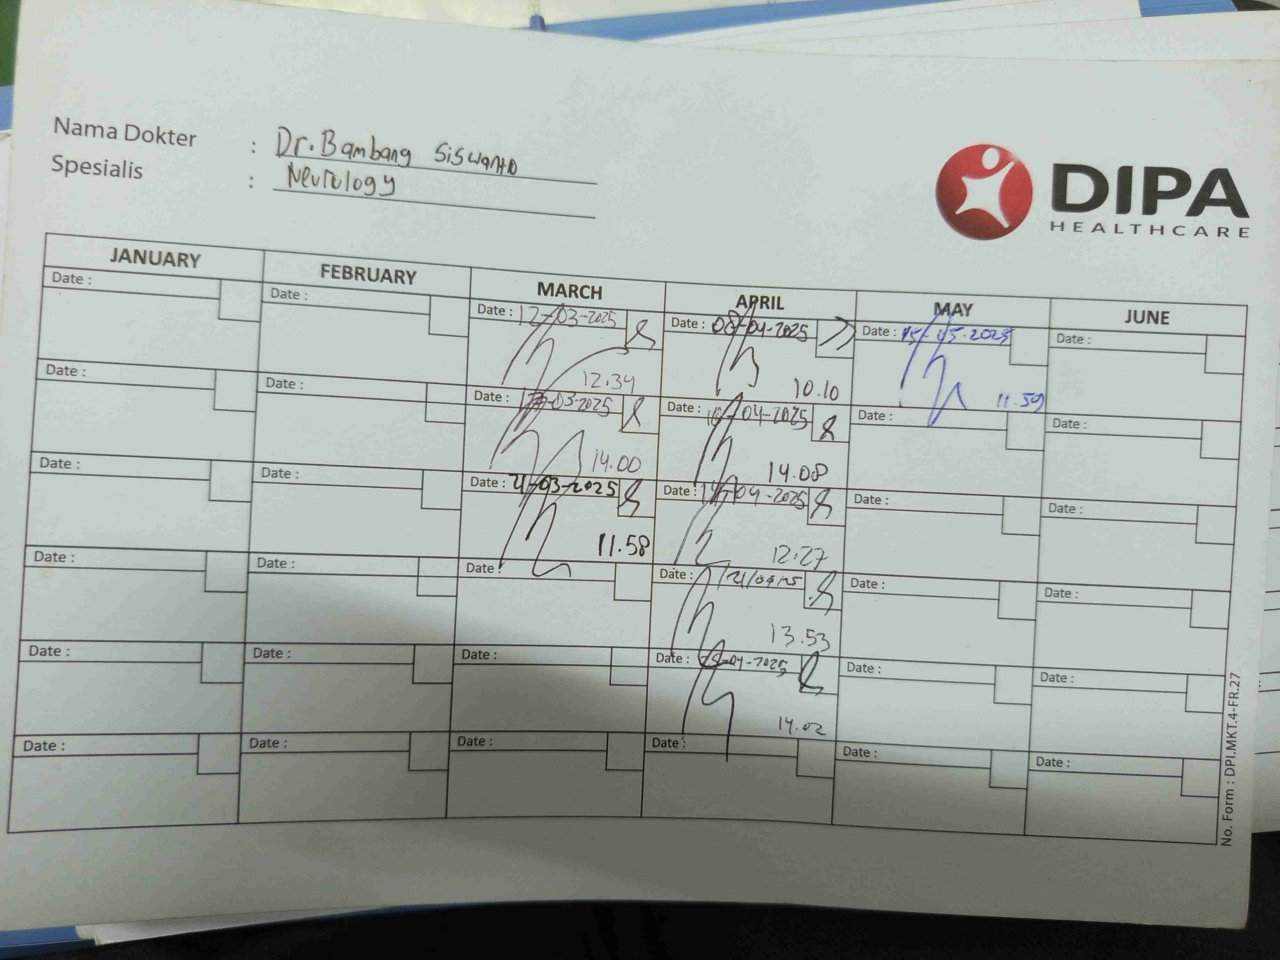 Nama Dokter : Dr. Bambang Siswanto
Spesialis : Neurology
DIPA
HEALTHCARE
JANUARY FEBRUARY MARCH APRIL MAY JUNE
Date : Date : Date : 12-03-2025 Date : 08-04-2025 Date : 15-05-2025 Date :
12.34 10.10 11.59
Date : Date : Date : -03-2025 Date : -04-2025 Date : Date :
14.00 14.08
Date : Date : Date : 21-03-2025 Date : -04-2025 Date : Date :
11.58 12.27
Date : Date : Date : Date : 21/04/25 Date : Date :
13.53
Date : Date : Date : Date : -04-2025 Date : Date :
14.02
Date : Date : Date : Date : Date : Date :
No. Form : DPI.MKT.4-FR.27